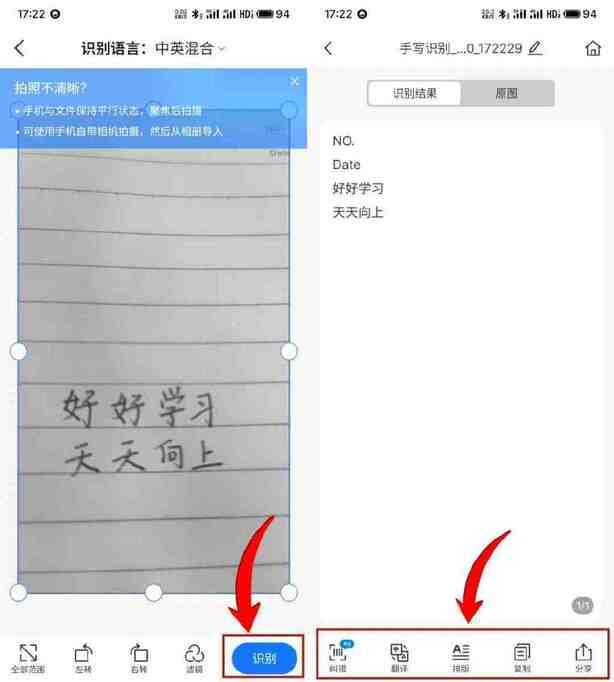 17:22
94
识别语言：中英混合
拍照不清晰？
• 手机与文件保持平行状态，聚焦后拍摄
• 可使用手机自带相机拍摄，然后从相册导入
好好学习
天天向上
全部范围
左转
右转
滤镜
识别
17:22
94
手写识别_...0_172229
识别结果
原图
NO.
Date
好好学习
天天向上
1/1
纠错
翻译
排版
复制
分享